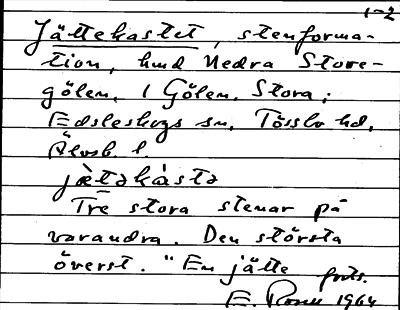 1-2
Jättekastet, stenforma-
tion, hmd Nedra Store-
gölen. 1 Gölen. Stora;
Edsleskogs sn. Tössbo hd,
Älvsb. l.
jὲtəkàstə
Tre stora stenar på
varandra. Den största
överst. "En jätte forts.
E. 1964